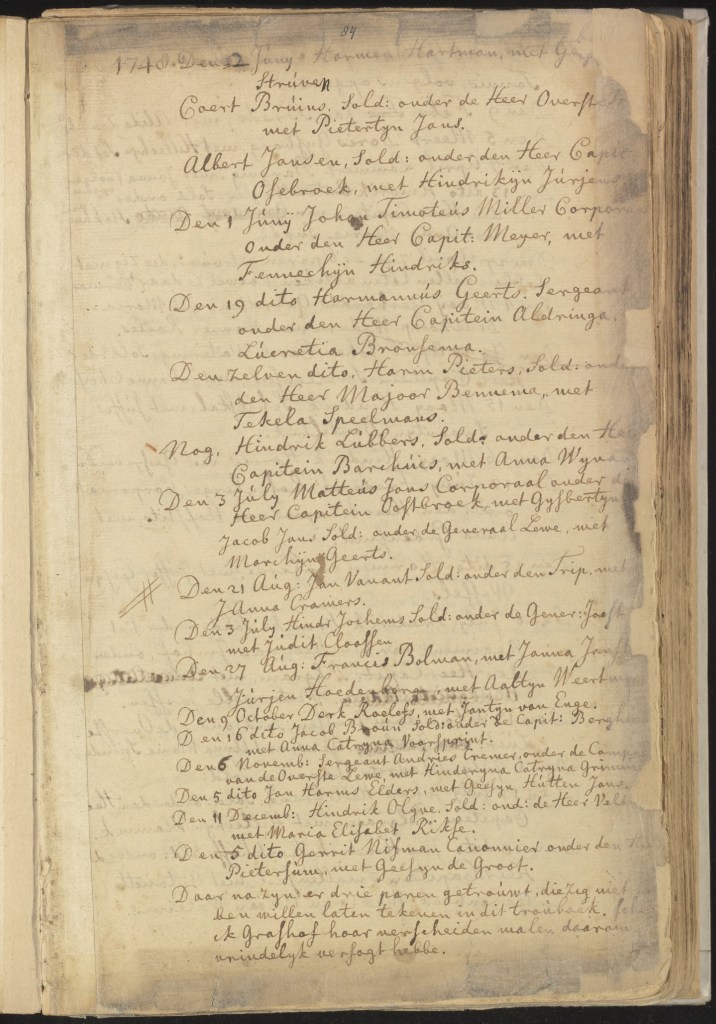 84
1748. Den 2 Juny Harmen Hartman, met
Strúven
Coert Brúins, Sold: onder de Heer Overst
met Pietertyn Jans.
Albert Jansen, Sold: onder den Heer Capit
Osebroek, met Hindrikijn Júrjens
Den 1 Júnÿ Johan Timoteús Miller Corpora
onder den Heer Capit: Meyer, met
Fennechijn Hindriks.
Den 19 dito Harmannús Geerts. Sergeant
onder den Heer Capitein Aldringa.
Lúcretia Bronsema.
Den zelven dito, Harm Pieters, Sold: onde
den Heer Majoor Bennema, met
Tekela Speelmans.
Nog, Hindrik Lúbbers, Sold: onder den Hee
Capitein Barchúis, met Anna Wyna
Den 3 Júly Matteús Jans Corporaal onder d
Heer Capitein Oostbroek, met Gysbertyn
Jacob Jans Sold: onder de Generaal Lewe, met
Marchijn Geerts.
Den 21 Aúg: Jan Vanant Sold: onder den Trip, met
JAnna Cramers.
Den 3 Júly Hindr Jochems Sold: onder de Gener:
met Júdit Claassen
Den 27 Aúg: Francis Bolman, met Janna
Júrjen Hoedenborg, met Aaltyn Weertm
Den 9 October Derk Roelefs, met Jantyn van Enge.
Den 16 dito Jacob Broún Sold: onder de Capit: Bergh
met Anna Catryna Voorsprint.
Den 6 Novemb: Sergeant Andries Cremer, onder de Comp
van de Overste Lewe, met Hinderyna Catryna
Den 5 dito Jan Harms Elders, met Geesyn Hútten Jans.
Den 11 Decemb: Hindrik Olyne, Sold: ond: de Heer
met Maria Elisabet Rikse.
Den 5 dito Gerrit Nisman Canonnier onder den
Pietersúm, met Geesyn de Groot.
Daar na zyn er drie paren getroúwt, die zig niet
ben willen laten tekenen in dit troúboek,
ik Grashof haar verscheiden malen daarom
vrindelyk versogt hebbe.